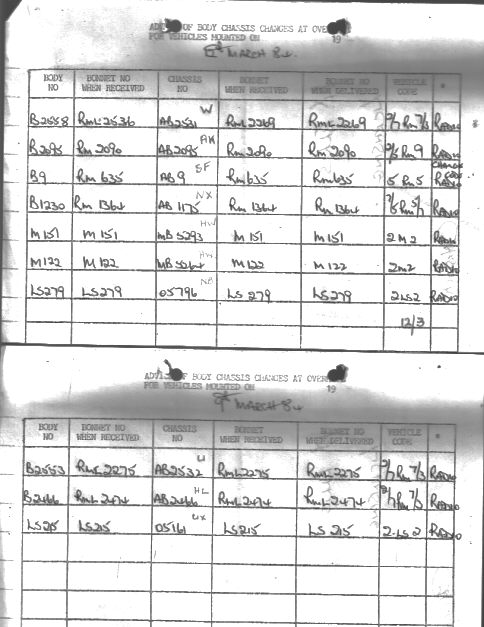 OF BODY CHASSIS CHANGES AT OVER
FOR VEHICLES MOUNTED ON 19
MARCH 84
BODY NO BONNET NO WHEN RECEIVED CHASSIS NO BONNET WHEN RECEIVED BONNET NO WHEN DELIVERED VEHICLE CODE *
B2558 RML2536 AB2531 W RML2269 RML2269 2/7 RM 7/3 RADIO *
B2095 RM 2090 AB2095 AK RM2090 RM 2090 2/6 RM 9 RADIO
B9 RM 635 AB 9 SF RM635 RM635 5 RM 5 CHANGE CODE RADIO
B1230 RM 1364 AB 1175 NX RM 1364 RM 1364 RADIO
M 151 M 151 MB 5293 HW M 151 M 151 2 M 2 RADIO
M 122 M 122 M122 M 122 2M2 RADIO
LS279 LS279 05796 NB LS 279 LS279 2LS2 RADIO
12/3
OF BODY CHASSIS CHANGES AT OVER
FOR VEHICLES MOUNTED ON 19
8th MARCH 84
BODY NO BONNET NO WHEN RECEIVED CHASSIS NO BONNET WHEN RECEIVED BONNET NO WHEN DELIVERED VEHICLE CODE *
B2553 RML2275 AB2532 U RML2275 RML2275 2/7 RM 7/3 RADIO
B2466 RML 2474 AB2466 HL RML2474 RML2474 2/7 RM 7/3 RADIO
LS215 LS215 05161 UX LS215 LS 215 2-LS 2 RADIO